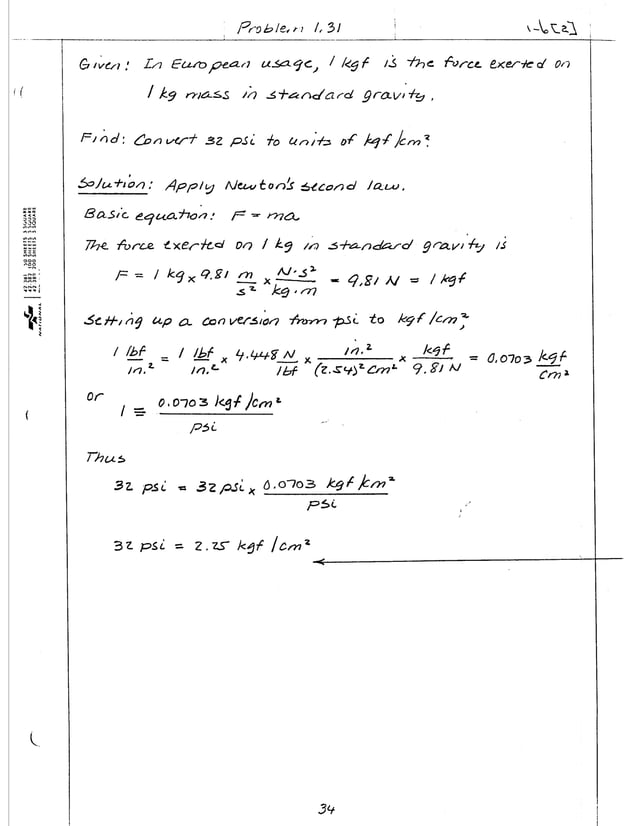 Problem 1.31
1-6[2]
Given: In European usage, 1 kgf is the force exerted on
1 kg mass in standard gravity.
Find: Convert 32 psi to units of kgf/cm².
Solution: Apply Newton's second law.
Basic equation: F = ma
The force exerted on 1 kg in standard gravity is
F = 1 kg × 9.81 m/s² × N·s²/kg·m = 9.81 N = 1 kgf
Setting up a conversion from psi to kgf/cm²,
1 lbf/in.² = 1 lbf/in.² × 4.448 N/lbf × in.²/(2.54)² cm² × kgf/9.81 N = 0.0703 kgf/cm²
or
1 ≡ 0.0703 kgf/cm²/psi
Thus
32 psi = 32 psi × 0.0703 kgf/cm²/psi
32 psi = 2.25 kgf/cm²
NATIONAL
34